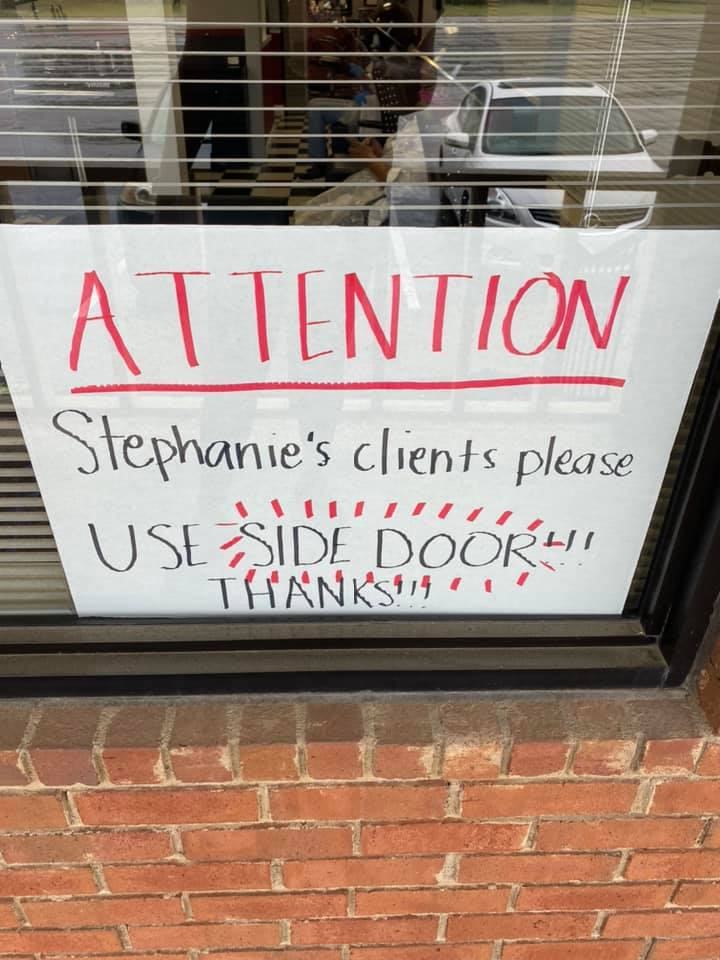 ATTENTION
Stephanie's clients please
USE SIDE DOOR!!!
THANKS!!!